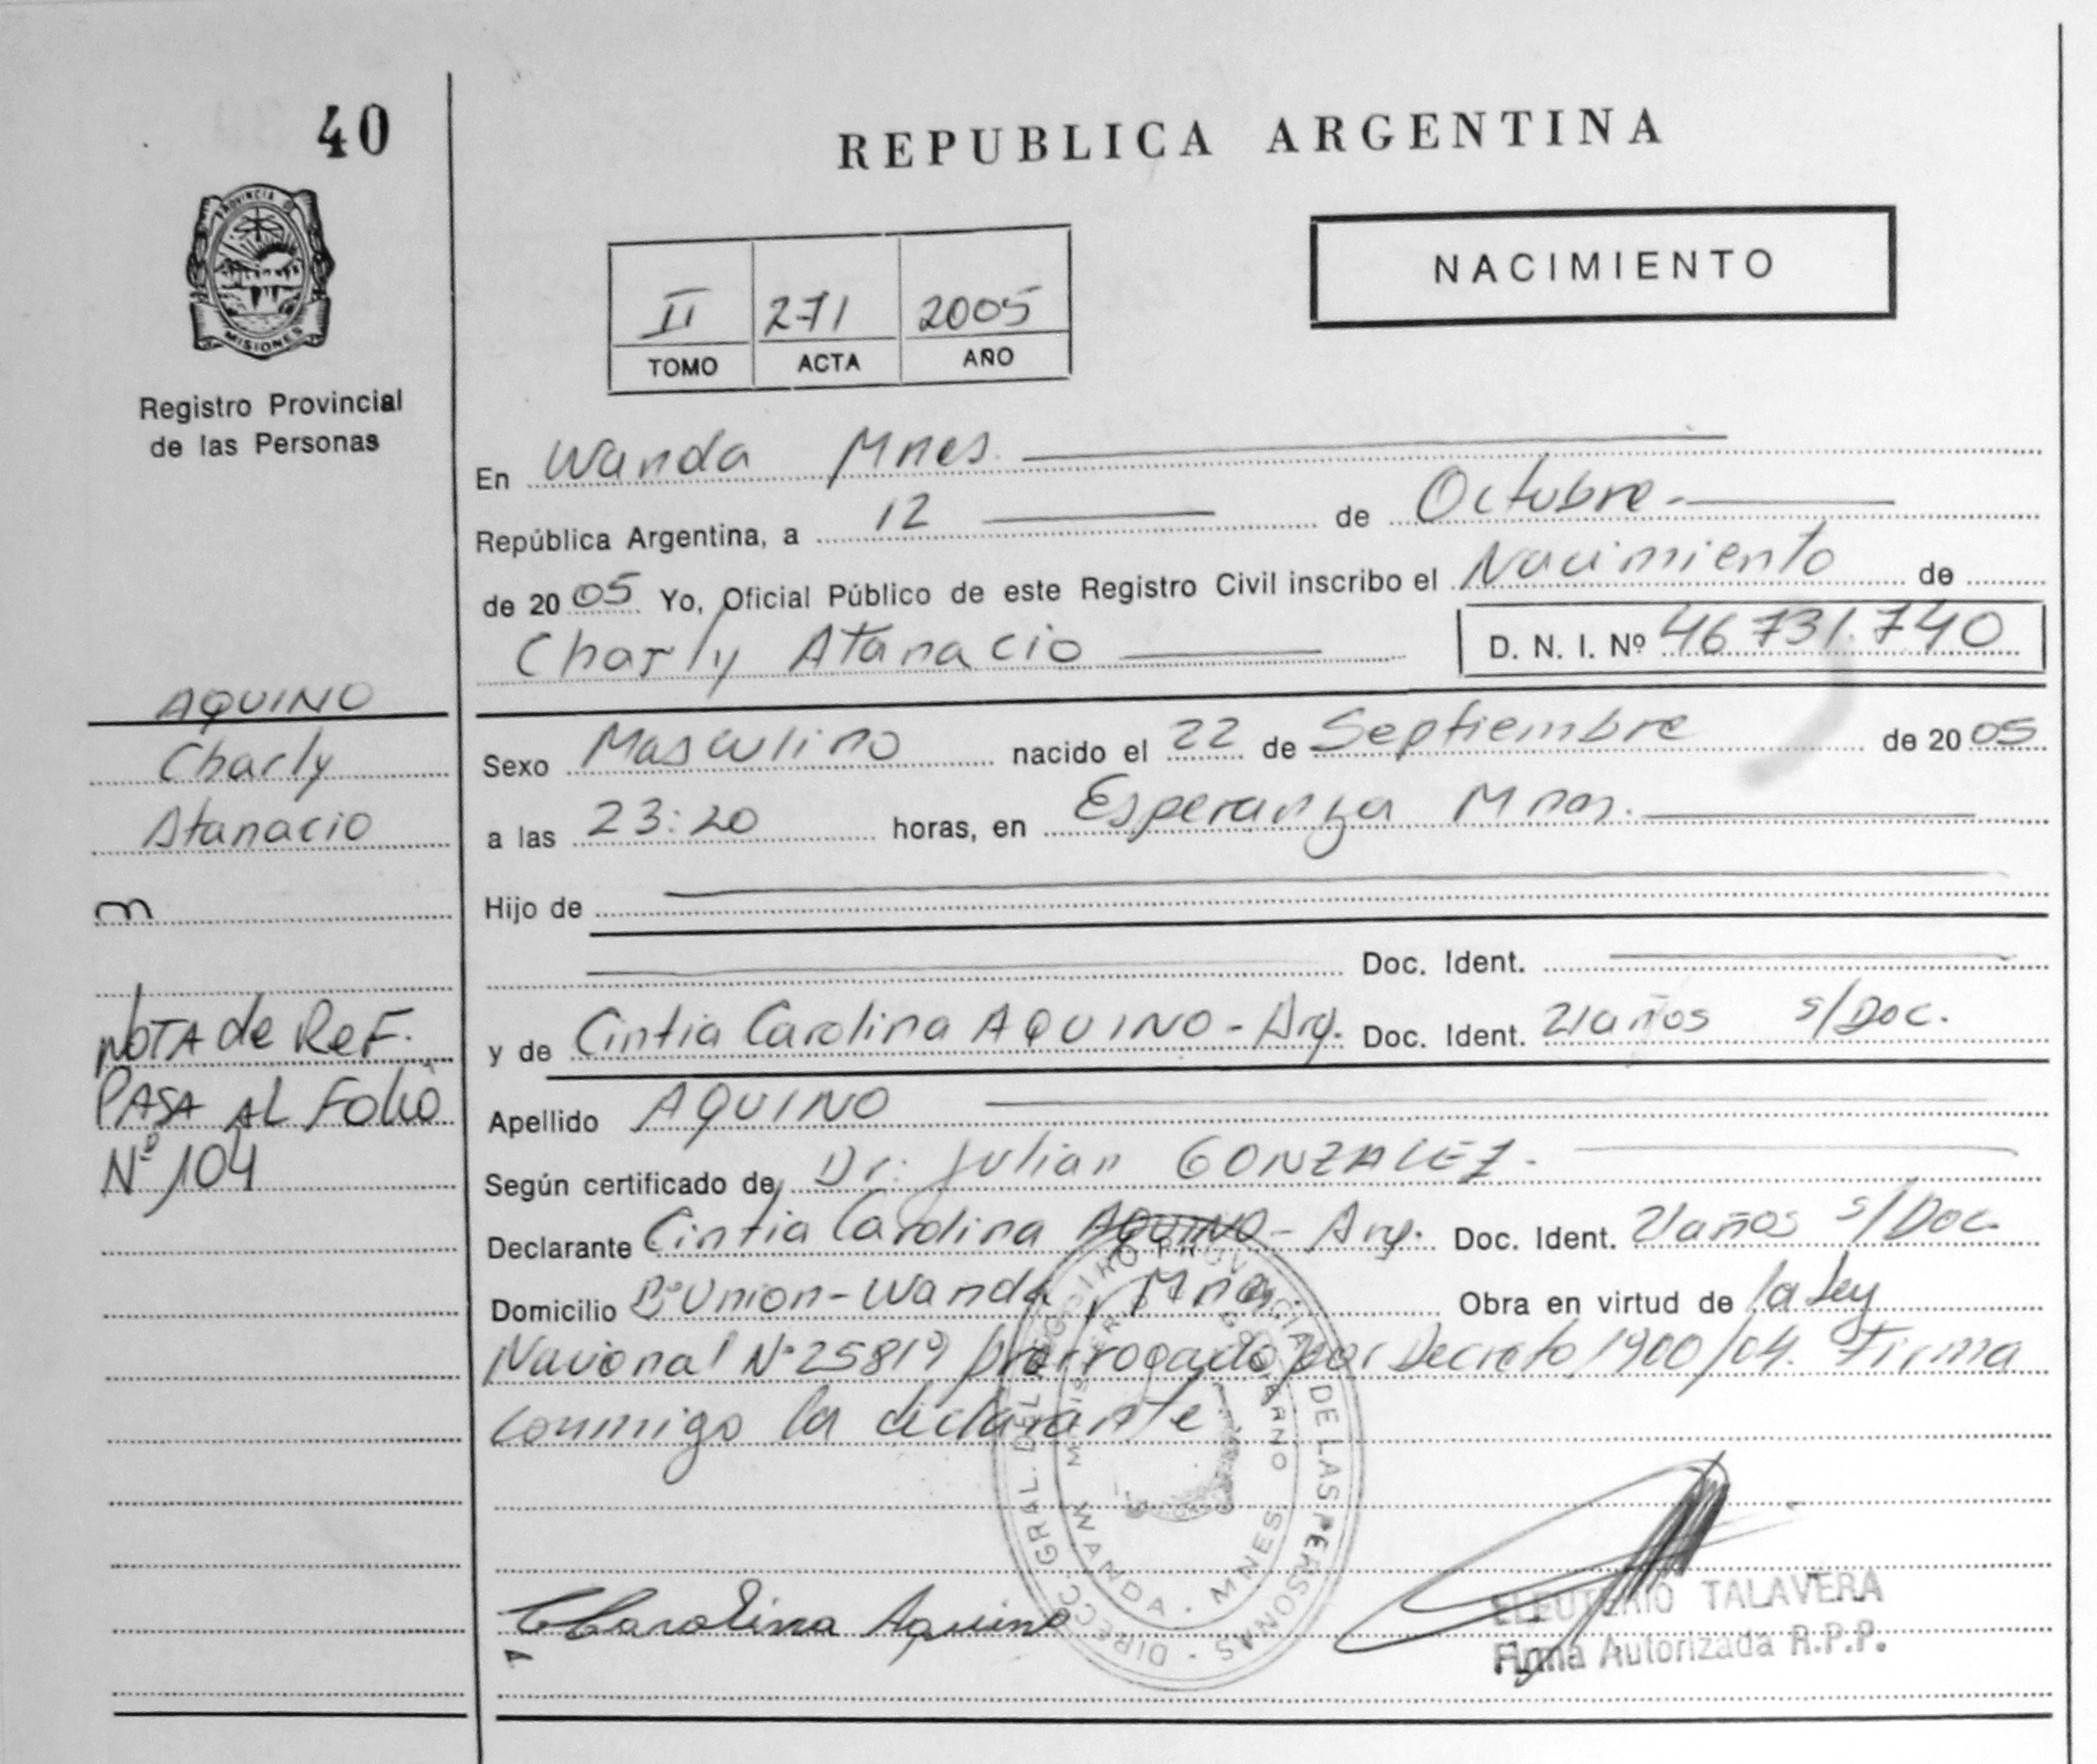 40
REPUBLICA ARGENTINA
PROVINCIA D
MISIONES
NACIMIENTO
II 271 2005
TOMO ACTA AÑO
Registro Provincial
de las Personas
En Wanda Mnes.
República Argentina, a 12 de Octubre.-
de 2005 Yo, Oficial Público de este Registro Civil inscribo el Nacimiento de
Charly Atanacio D. N. I. Nº 46.731.740
AQUINO
Charly
Atanacio
Sexo Masculino nacido el 22 de Septiembre de 2005
a las 23:20 horas, en Esperanza Mnes.
Hijo de
Doc. Ident.
NOTA de ReF.
PASA AL Folio
Nº 104
y de Cintia Carolina AQUINO - Arg. Doc. Ident. 21 años s/Doc.
Apellido AQUINO
Según certificado de Dr. Julian GONZALEZ.
Declarante Cintia Carolina AQUINO - Arg. Doc. Ident. 21 años s/Doc.
Domicilio Bº Union - Wanda, Mnes. Obra en virtud de la Ley
Nacional Nº 25819 prorrogado por Decreto 1900/04. Firma
conmigo la declarante
DIRECC. GRAL. DEL REGISTRO PROVINCIAL DE LAS PERSONAS
MINISTERIO GOBIERNO
WANDA - MNES
Carolina Aquino
ELEUTERIO TALAVERA
Firma Autorizada R.P.P.